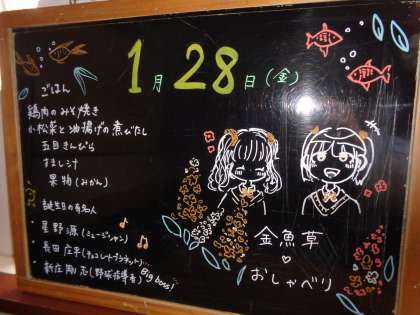 1月28日(金)
ごはん
鶏肉のみそ焼き
小松菜と油揚げの煮びたし
五目きんぴら
すまし汁
果物(みかん)
誕生日の有名人
星野源(ミュージシャン)
長田庄平(チョコレートプラネット)
新庄剛志(野球指導者)
Big boss!
金魚草
♡
おしゃべり